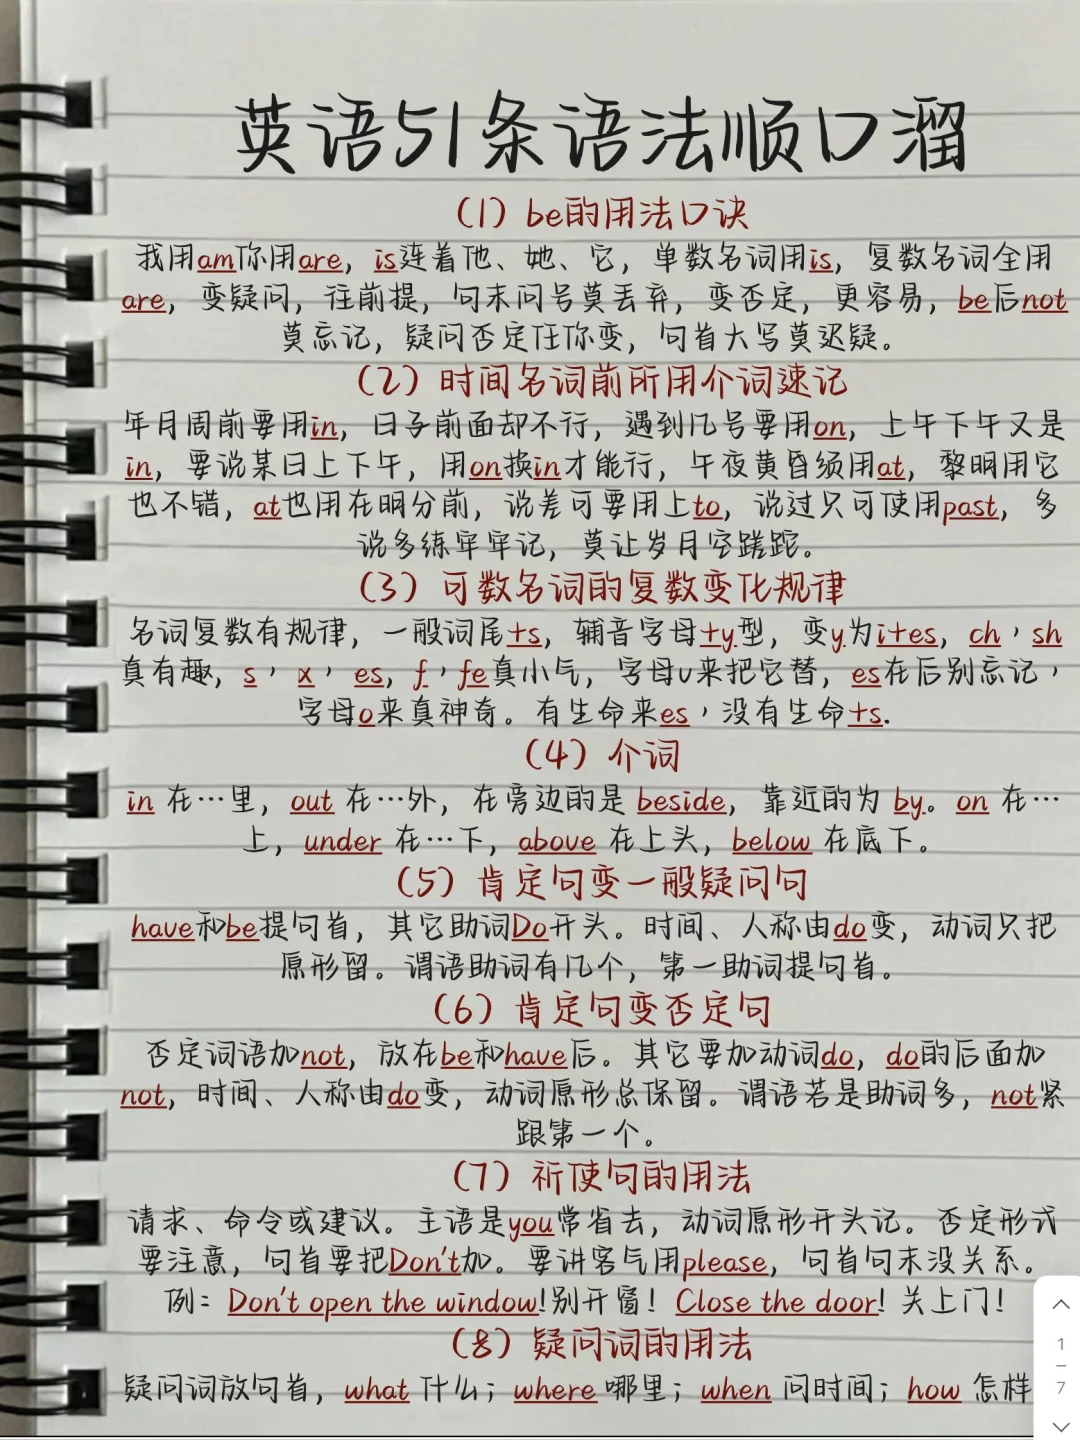 英语51条语法顺口溜
（1）be的用法口诀
我用am你用are，is连着他、她、它，单数名词用is，复数名词全用
are，变疑问，往前提，句末问号莫丢弃，变否定，更容易，be后not
莫忘记，疑问否定任你变，句首大写莫迟疑。
（2）时间名词前所用介词速记
年月周前要用in，日子前面却不行，遇到几号要用on，上午下午又是
in，要说某日上下午，用on换in才能行，午夜黄昏须用at，黎明用它
也不错，at也用在明分前，说差可要用上to，说过只可使用past，多
说多练牢牢记，莫让岁月空蹉跎。
（3）可数名词的复数变化规律
名词复数有规律，一般词尾+s，辅音字母+y型，变y为i+es，ch，sh
真有趣，s，x，es，f，fe真小气，字母v来把它替，es在后别忘记，
字母o来真神奇。有生命来es，没有生命+s.
（4）介词
in 在…里，out 在…外，在旁边的是 beside，靠近的为 by。on 在…
上，under 在…下，above 在上头，below 在底下。
（5）肯定句变一般疑问句
have和be提句首，其它助词Do开头。时间、人称由do变，动词只把
原形留。谓语助词有几个，第一助词提句首。
（6）肯定句变否定句
否定词语加not，放在be和have后。其它要加动词do，do的后面加
not，时间、人称由do变，动词原形总保留。谓语若是助词多，not紧
跟第一个。
（7）祈使句的用法
请求、命令或建议。主语是you常省去，动词原形开头记。否定形式
要注意，句首要把Don't加。要讲客气用please，句首句末没关系。
例：Don't open the window!别开窗！Close the door! 关上门！
（8）疑问词的用法
疑问词放句首，what 什么；where 哪里；when 问时间；how 怎样
1
7